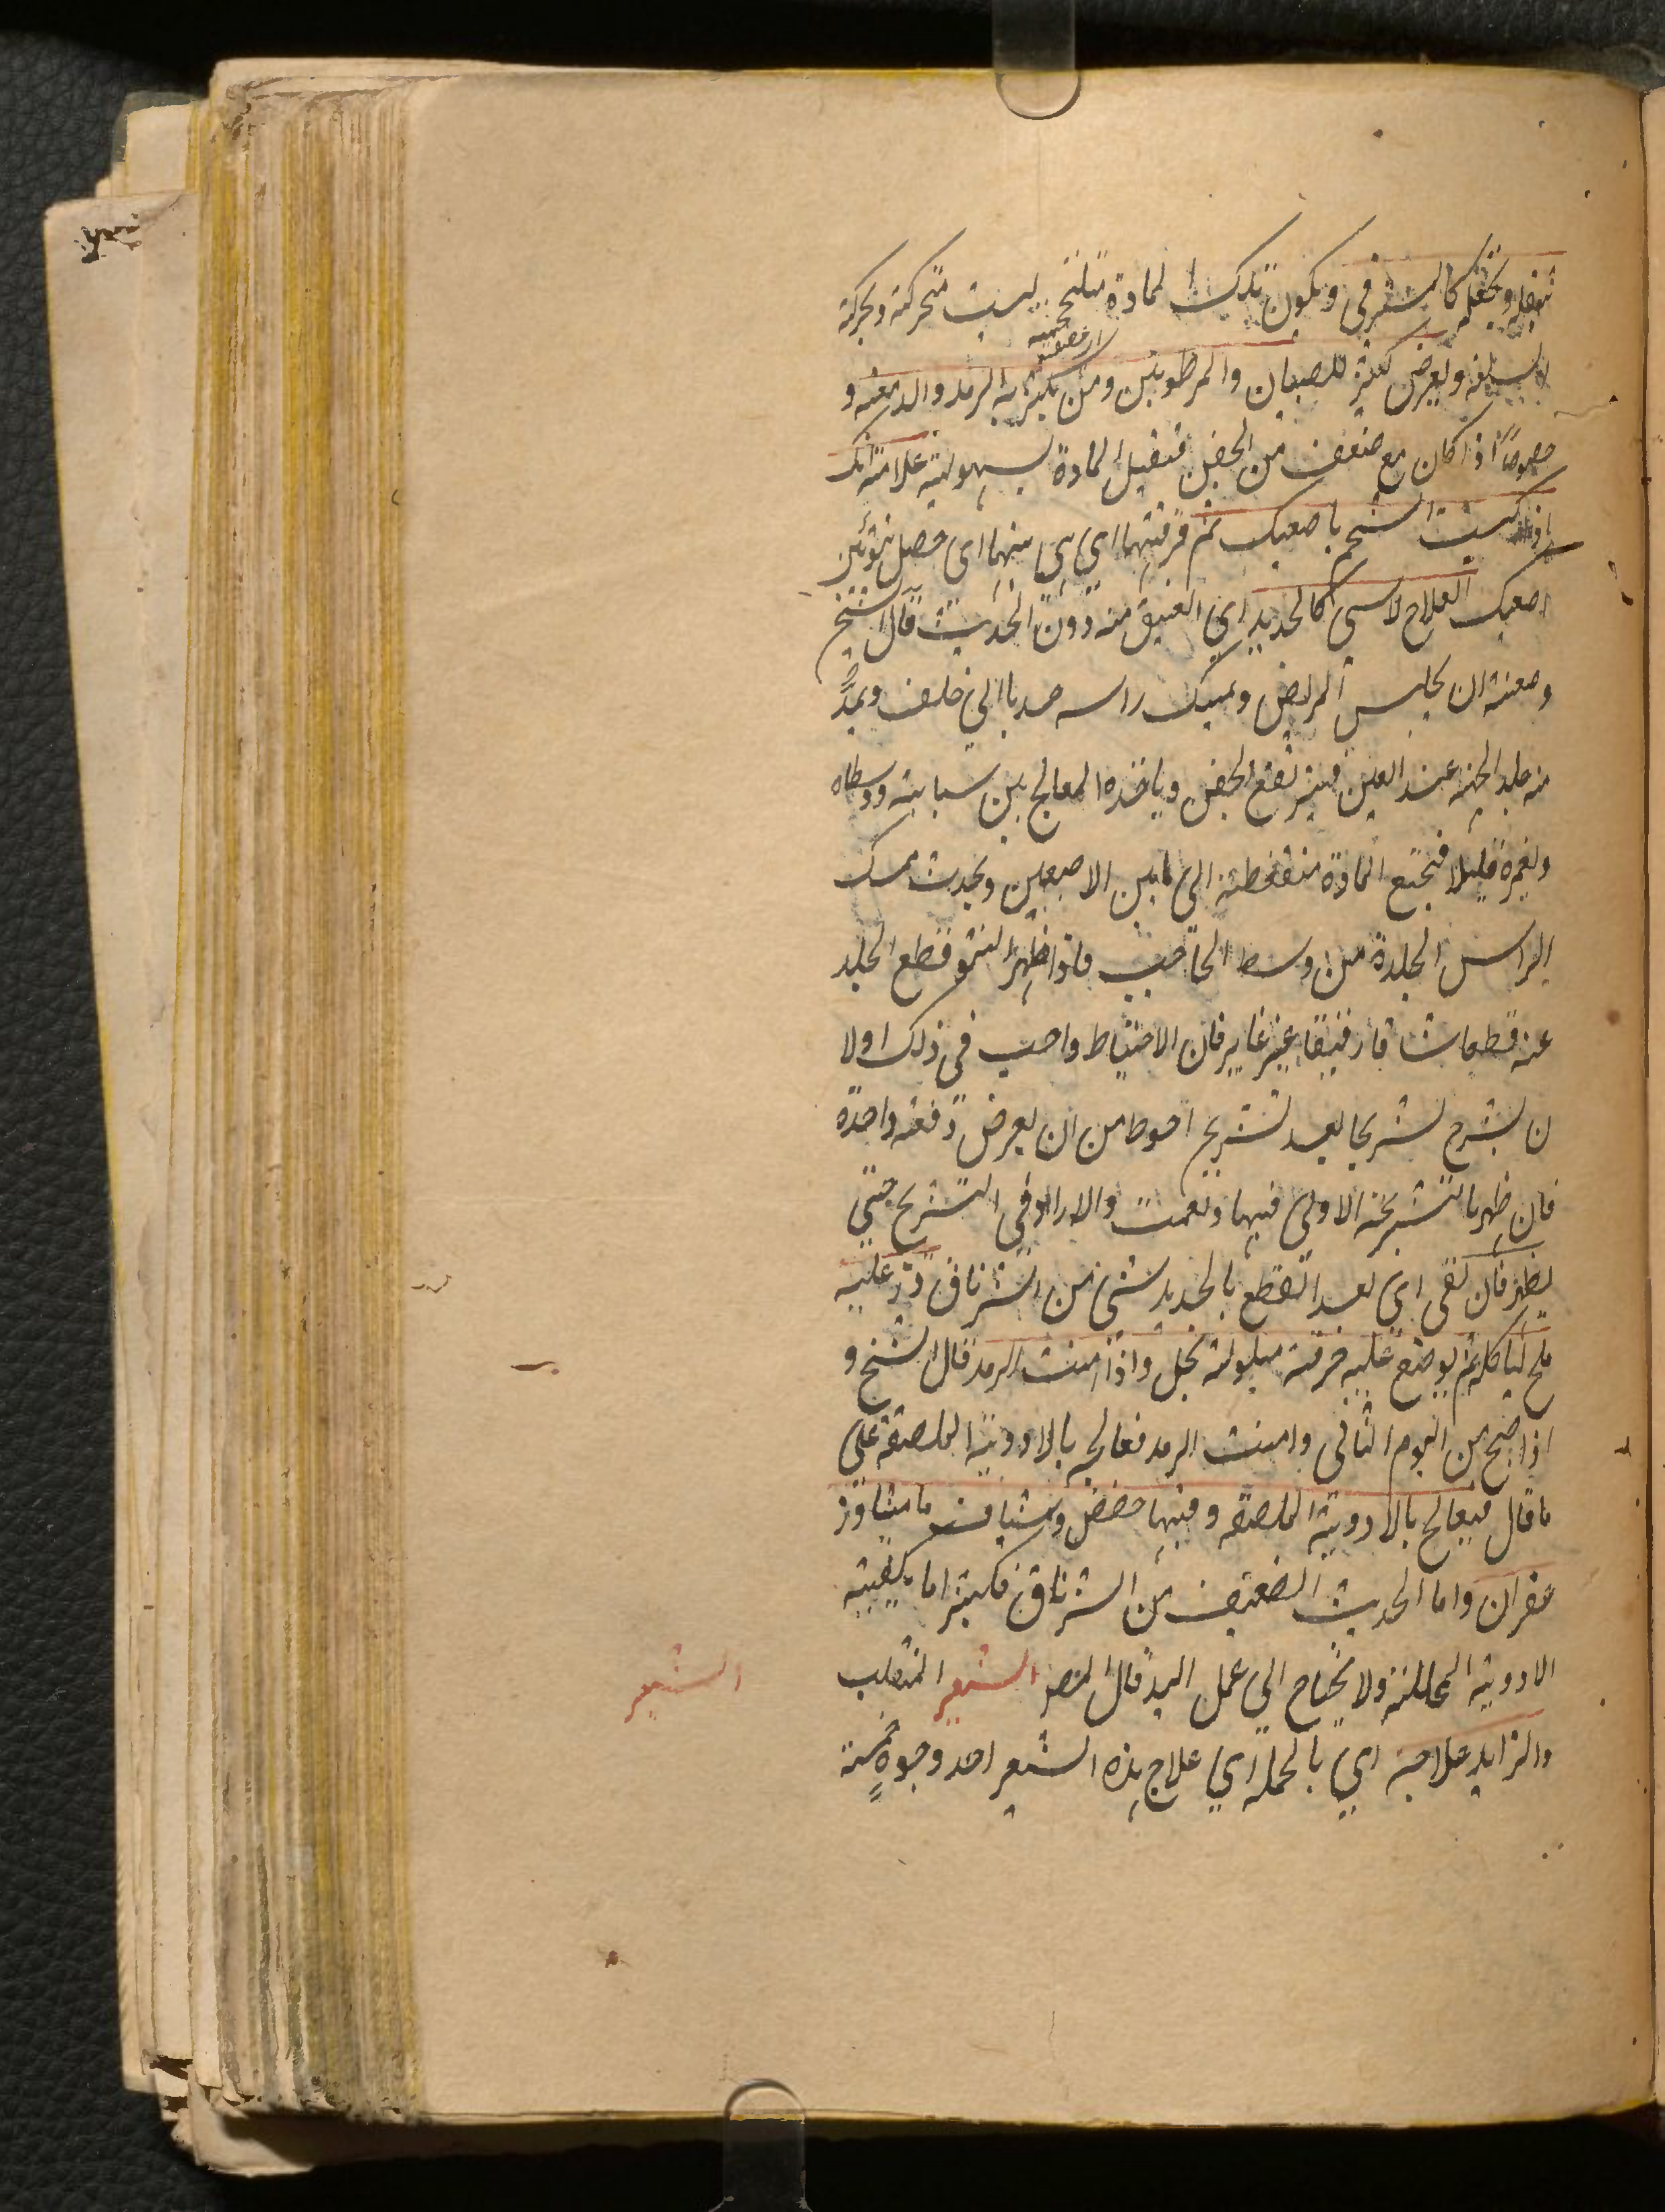 تثقله وتجعله كالمسترخي ويكون تلك المادة متلحج ليست متحركة وكحركة
السلعة ويعرض كثير للصبيان والمرطوبين ومن يكثر به الرمد والدمعة و
خصوصاً اذا كان مع ضعف من الجفن فتقبل المادة بسهولته علامته انك
اذا كبست الشحم باصبعيك ثم فرقتهما اي بينهما اي حصل نتو بين
اصبعيك العلاج لا شي كالحديد اي العتيق منه دون الحديث قال الشيخ
وصفته ان يجلس المريض ويمسك راسه جذبا الي خلف ويمد
منه جلد الجبهة عند العين فيرتفع الجفن وياخذه المعالج بين سبابته ووسطاه
ويغمزه قليلا فيجتمع المادة منضغطة الي ما بين الاصبعين ويجذب ممسك
الراس الجلدة من وسط الحاجب فاذا ظهر النتو قطع الجلد
عنه قطعا شاقا رقيقا غير غاير فان الاحتياط واجب في ذلك اولا
ن يشرح تشريحا بعد تشريح احوط من ان يعرض دفعة واحدة
فان ظهر بالتشريحة الاولي فبها ونعمت والا زاد في التشريح حتي
يظهر فان بقي اي بعد القطع بالحديد شئ من الشرناق ذر عليه
ملح لياكله ثم يوضع عليه خرقة مبلولة بخل واذا امنت الرمد قال الشيخ و
اذا اصبح من اليوم الثاني وامنت الرمد فعالجه بالادوية الملصقة علي
ما قال فيعالج بالادوية الملصقة وفيها حضض وشياف ماميثا وز
عفران واما الحديث الضعيف من الشرناق فكثيرا ما يكفيه
الادوية المحللة ولا يحتاج الي عمل اليد قال المصر الشعر المنقلب
الشعر
والزايد علاجه اي بالجملة اي علاج هذه الشعر احد وجوهٍ خمسة